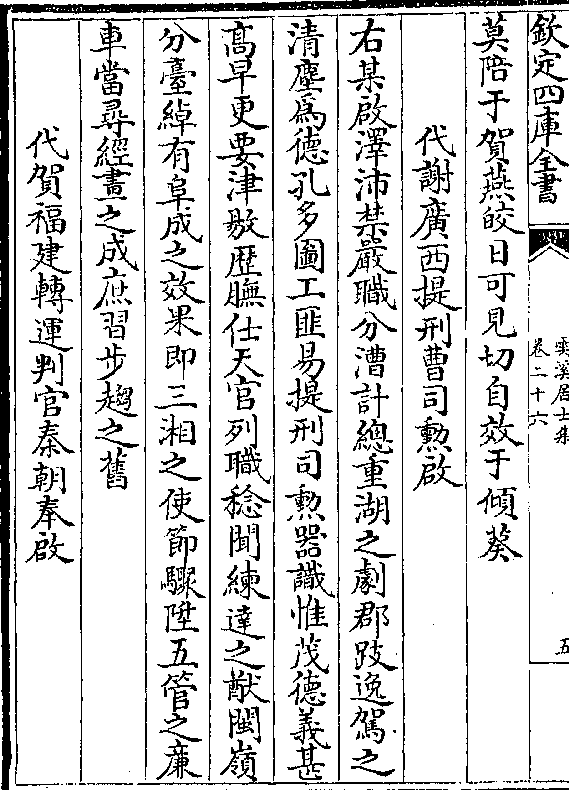 欽定四庫全書
雲溪居士集
卷二十六
五
莫陪于賀燕皎日可見切自效于傾葵
代謝廣西提刑曹司勲啟
右某啟澤沛禁嚴職分漕計總重湖之劇郡跂逸駕之
清塵為德孔多圖工匪易提刑司勲器識惟茂德義甚
髙早更要津敭歴膴仕天官列職稔聞練達之猷閩嶺
分臺綽有阜成之效果即三湘之使節驟陞五管之廉
車當尋經畫之成庶習步趨之舊
代賀福建轉運判官秦朝奉啟